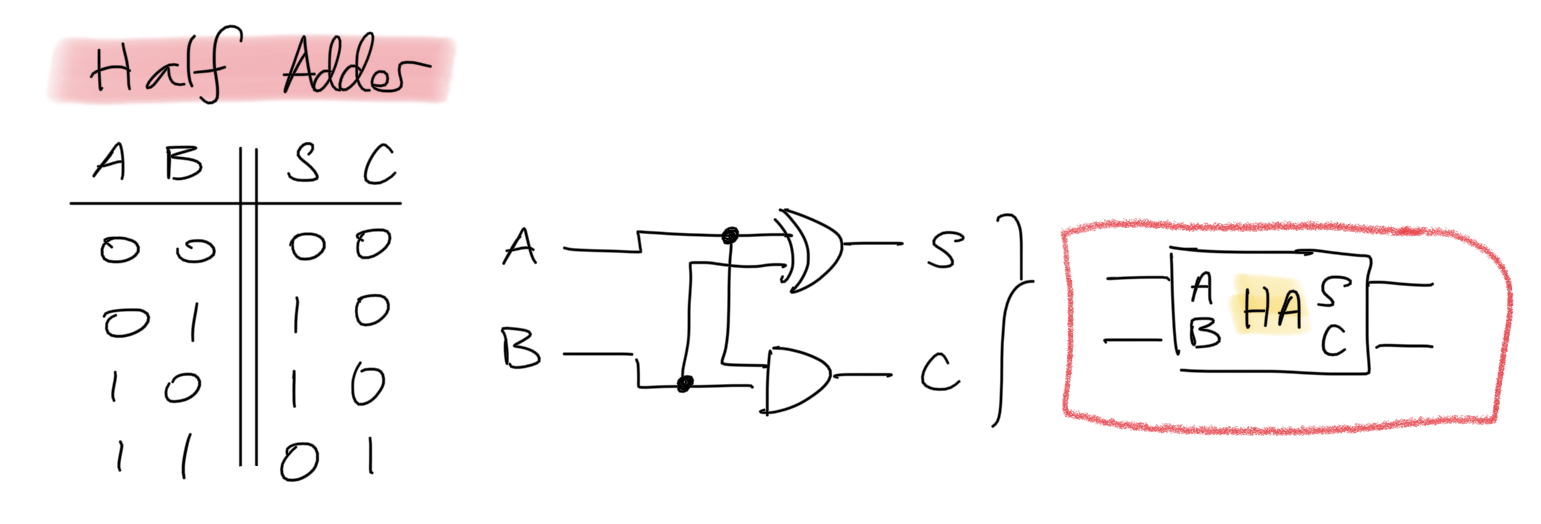 Half Adder
A B S C
0 0 0 0
0 1 1 0
1 0 1 0
1 1 0 1
A S
B C
A HA S
B C